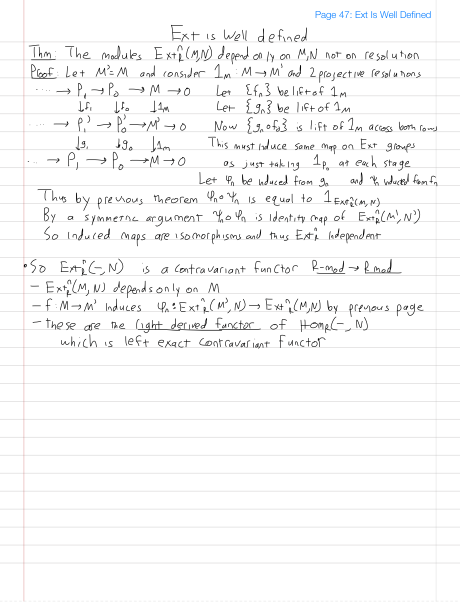 Page 47: Ext Is Well Defined
Ext is Well defined
Thm: The modules Extⁿ_R(M,N) depend only on M,N not on resolution
Proof: Let M'=M and consider 1_M: M→M' and 2 projective resolutions
⋯ → P₁ → P₀ → M → 0 Let {fₙ} be lift of 1_M
↓f₁ ↓f₀ ↓1_M Let {gₙ} be lift of 1_M
⋯ → P₁' → P₀' → M' → 0 Now {gₙ∘fₙ} is lift of 1_M across both rows
↓g₁ ↓g₀ ↓1_M This must induce same map on Ext groups
⋯ → P₁ → P₀ → M → 0 as just taking 1_Pₙ at each stage
Let φₙ be induced from gₙ and ψₙ induced from fₙ
Thus by previous theorem φₙ∘ψₙ is equal to 1_Extⁿ_R(M,N)
By a symmetric argument ψₙ∘φₙ is Identity map of Extⁿ_R(M',N)
So induced maps are isomorphisms and thus Extⁿ_R Independent
• So Extⁿ_R(−,N) is a contravariant functor R-mod → R mod
− Extⁿ_R(M,N) depends only on M
− f: M→M' induces φₙ: Extⁿ_R(M',N) → Extⁿ_R(M,N) by previous page
− these are the right derived functor of Hom_R(−,N)
which is left exact contravariant functor